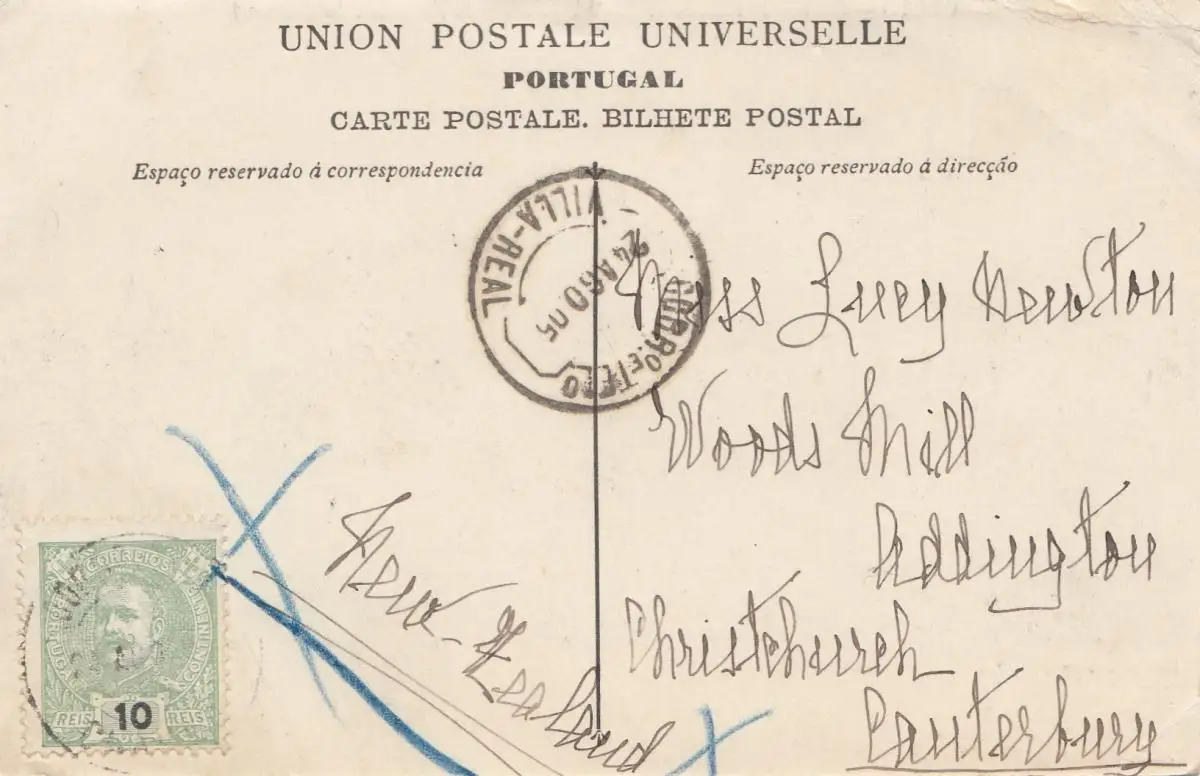 UNION POSTALE UNIVERSELLE
PORTUGAL
CARTE POSTALE. BILHETE POSTAL
Espaço reservado á correspondencia
Espaço reservado á direcção
VILLA-REAL
24 AGO 05
CORRº E TELº
Miss Lucy Newton
Woods Mill
Addington
Christchurch
Canterbury
New-Zealand
PORTUGAL CORREIOS
REIS 10 REIS